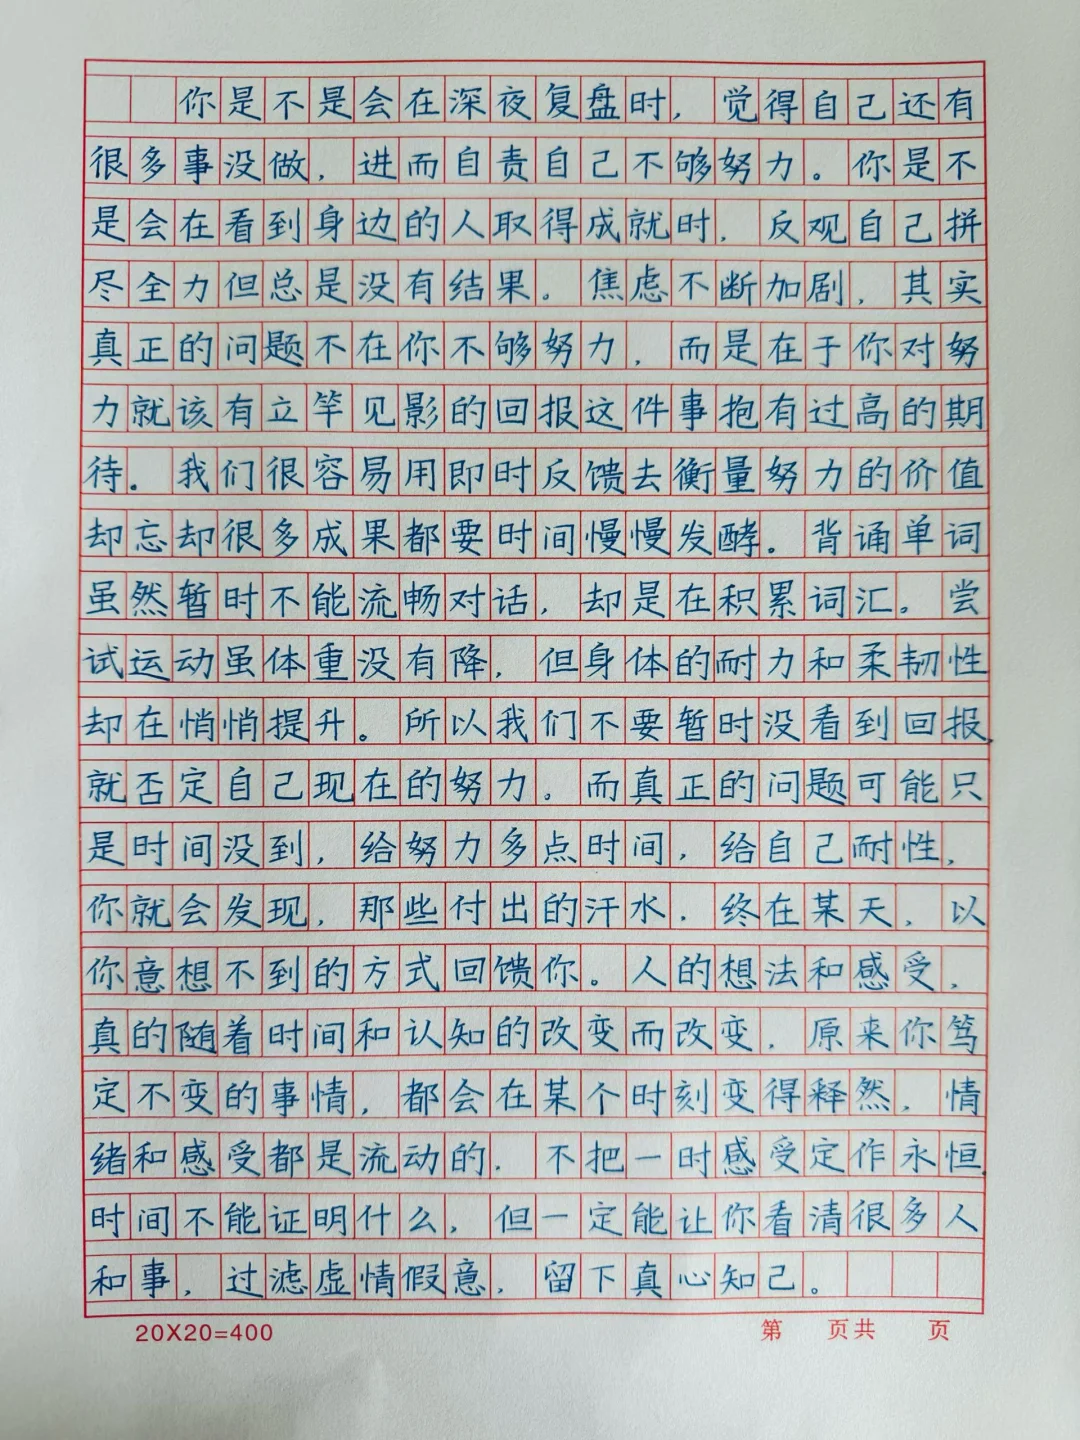 你是不是会在深夜复盘时，觉得自己还有
很多事没做，进而自责自己不够努力。你是不
是会在看到身边的人取得成就时，反观自己拼
尽全力但总是没有结果。焦虑不断加剧，其实
真正的问题不在你不够努力，而是在于你对努
力就该有立竿见影的回报这件事抱有过高的期
待。我们很容易用即时反馈去衡量努力的价值
却忘却很多成果都要时间慢慢发酵。背诵单词
虽然暂时不能流畅对话，却是在积累词汇。尝
试运动虽体重没有降，但身体的耐力和柔韧性
却在悄悄提升。所以我们不要暂时没看到回报，
就否定自己现在的努力。而真正的问题可能只
是时间没到，给努力多点时间，给自己耐性，
你就会发现，那些付出的汗水，终在某天，以
你意想不到的方式回馈你。人的想法和感受，
真的随着时间和认知的改变而改变，原来你笃
定不变的事情，都会在某个时刻变得释然，情
绪和感受都是流动的，不把一时感受定作永恒，
时间不能证明什么，但一定能让你看清很多人
和事，过滤虚情假意，留下真心知己。
20X20=400
第 页共 页